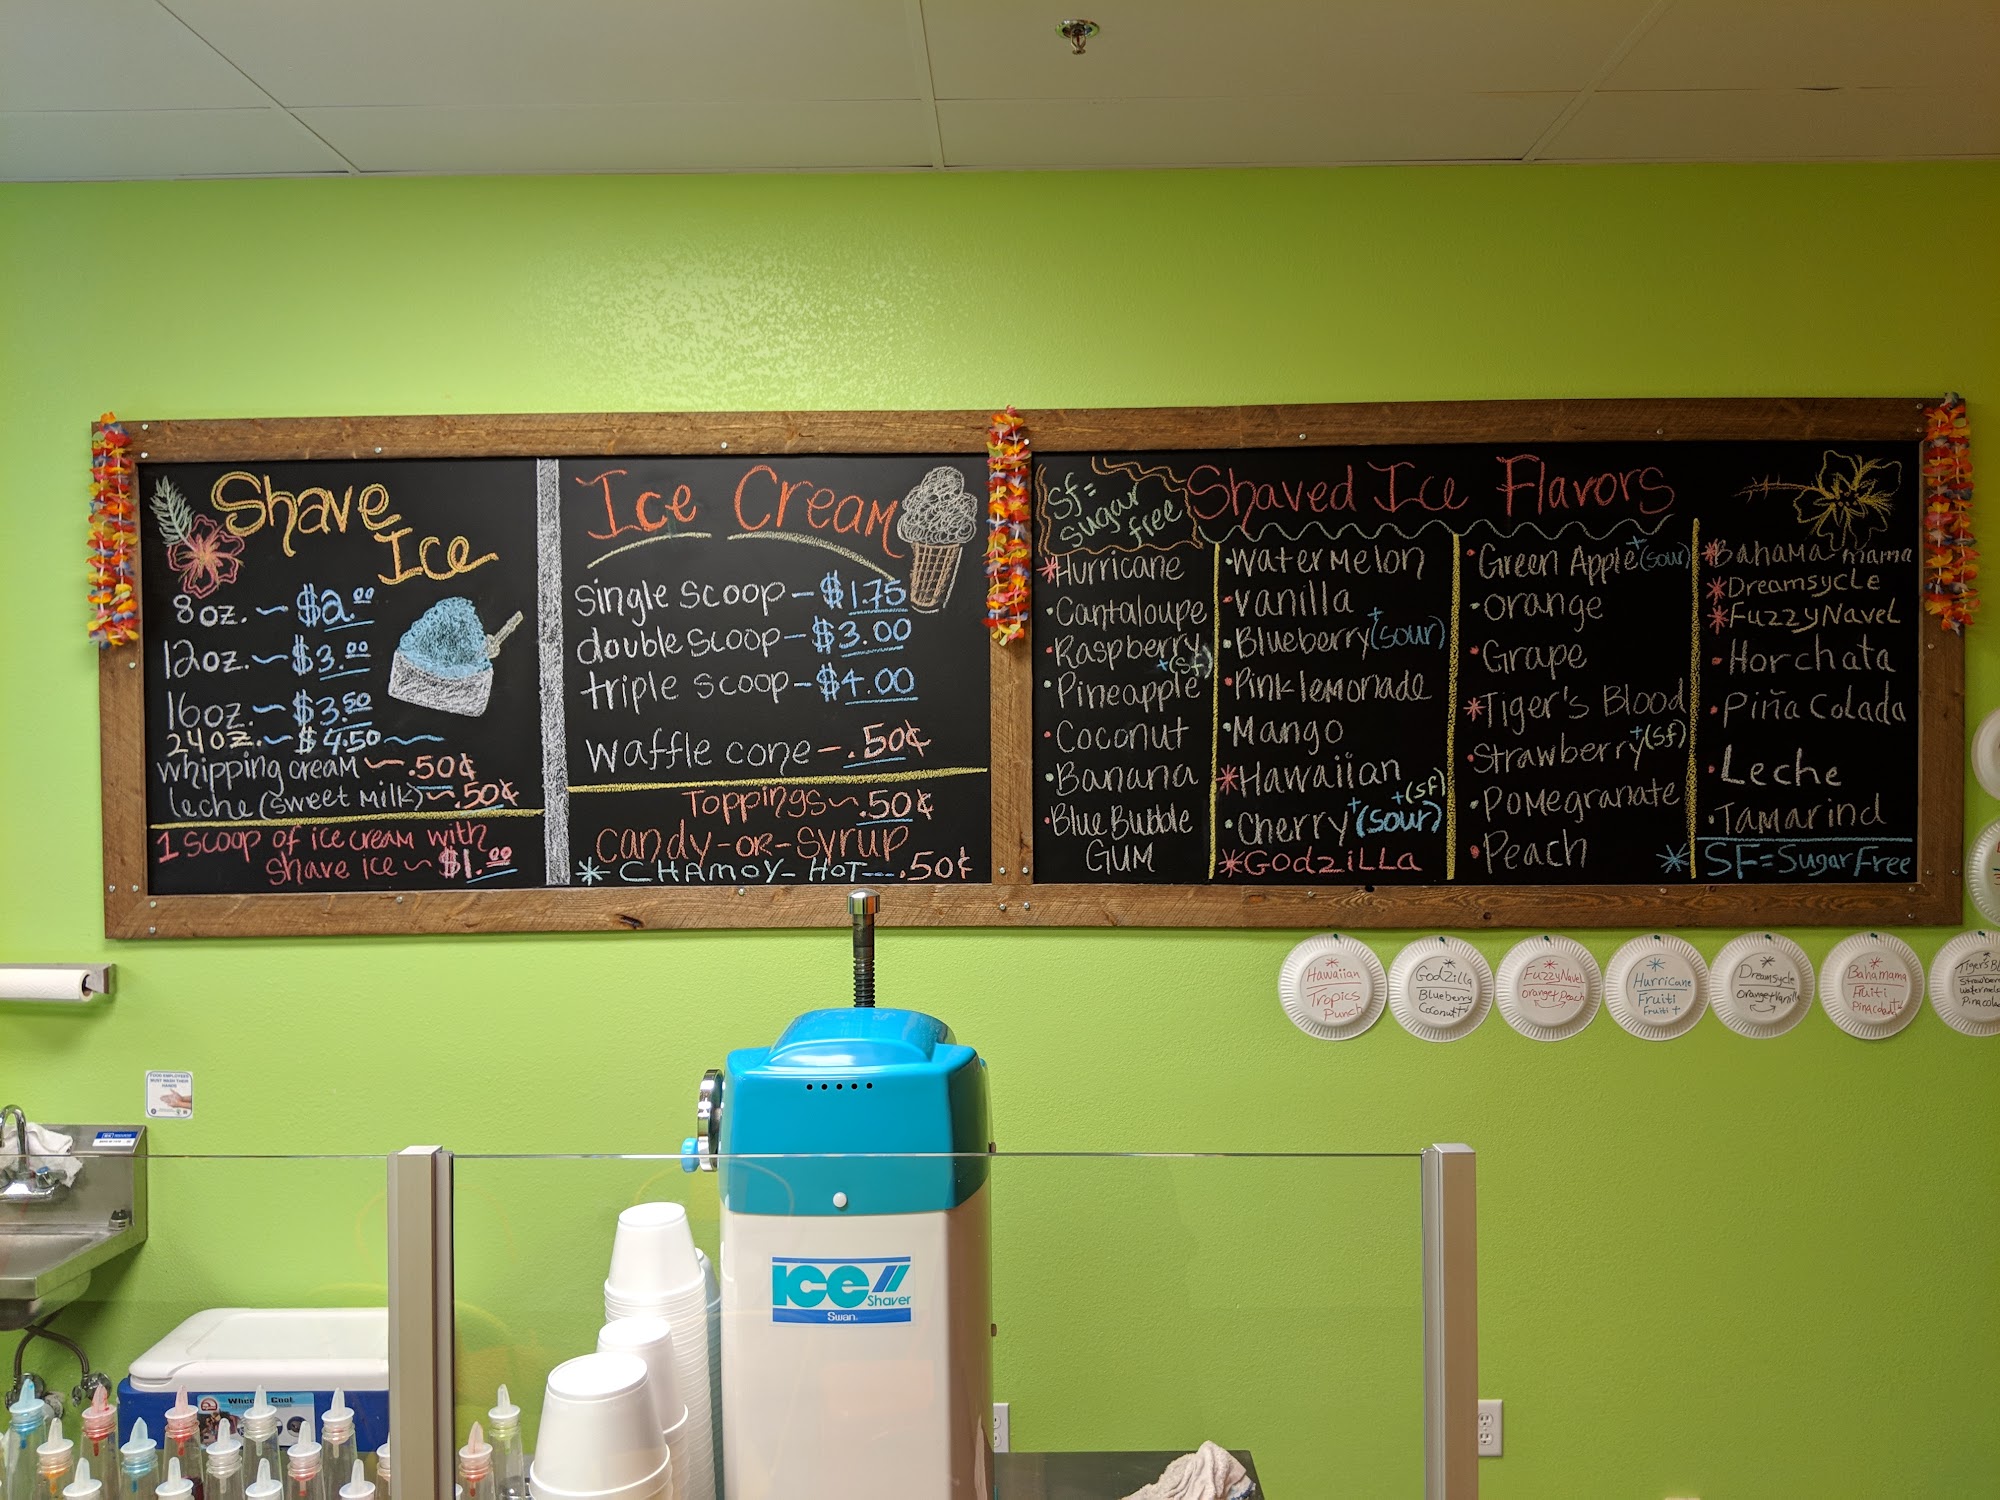 Shave
Ice
8oz. ~ $2.00
12oz. ~ $3.00
16oz. ~ $3.50
24oz. ~ $4.50 ~
whipping cream ~ .50¢
leche (sweet milk) ~ .50¢
1 scoop of ice cream with
shave ice ~ $1.00
Ice Cream
single scoop - $1.75
double scoop - $3.00
triple scoop - $4.00
waffle cone - .50¢
Toppings ~ .50¢
candy-or-syrup
* CHAMOY-HOT--- .50¢
Sf=
sugar
free
Shaved Ice Flavors
*Hurricane
•Cantaloupe
•Raspberry
+(sf)
•Pineapple
•Coconut
•Banana
•Blue Bubble
GUM
•Watermelon
•Vanilla
•Blueberry+(sour)
•Pink lemonade
•Mango
*Hawaiian
+(sf)
•Cherry+(sour)
*Godzilla
•Green Apple+(sour)
•Orange
•Grape
*Tiger's Blood
•Strawberry+(sf)
•Pomegranate
•Peach
*Bahama mama
*Dreamsycle
*Fuzzy Navel
•Horchata
•Piña Colada
•Leche
•Tamarind
* SF=Sugar Free
*
Hawaiian
Tropics
Punch
*
Godzilla
Blueberry
Coconut
*
Fuzzy Navel
orange+Peach
*
Hurricane
Fruiti
Fruiti +
*
Dreamsycle
orange+Vanilla
*
Bahamama
Fruiti
Pinacolada
Tiger's Bl
Strawberr
watermelo
Pinacola
FOOD EMPLOYEES
MUST WASH THEIR
HANDS
ICE
Shaver
Swan
Whee Cool